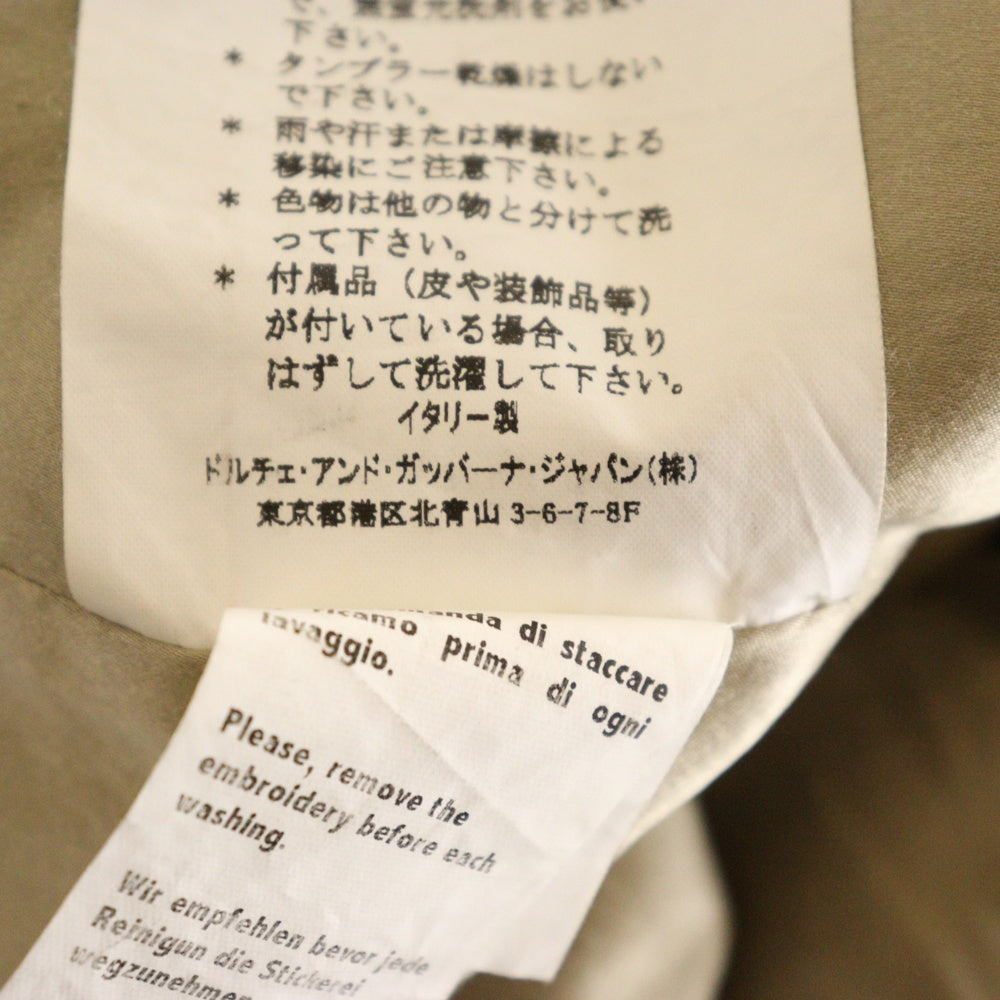 下さい。
* タンブラー乾燥はしない
で下さい。
* 雨や汗または摩擦による
移染にご注意下さい。
* 色物は他の物と分けて洗
って下さい。
* 付属品（皮や装飾品等）
が付いている場合、取り
はずして洗濯して下さい。
イタリー製
ドルチェ・アンド・ガッバーナ・ジャパン(株)
東京都港区北青山 3-6-7-8F
di staccare
prima di ogni
lavaggio.
Please, remove the
embroidery before each
washing.
Wir empfehlen bevor jede
Reinigun die Stickerei